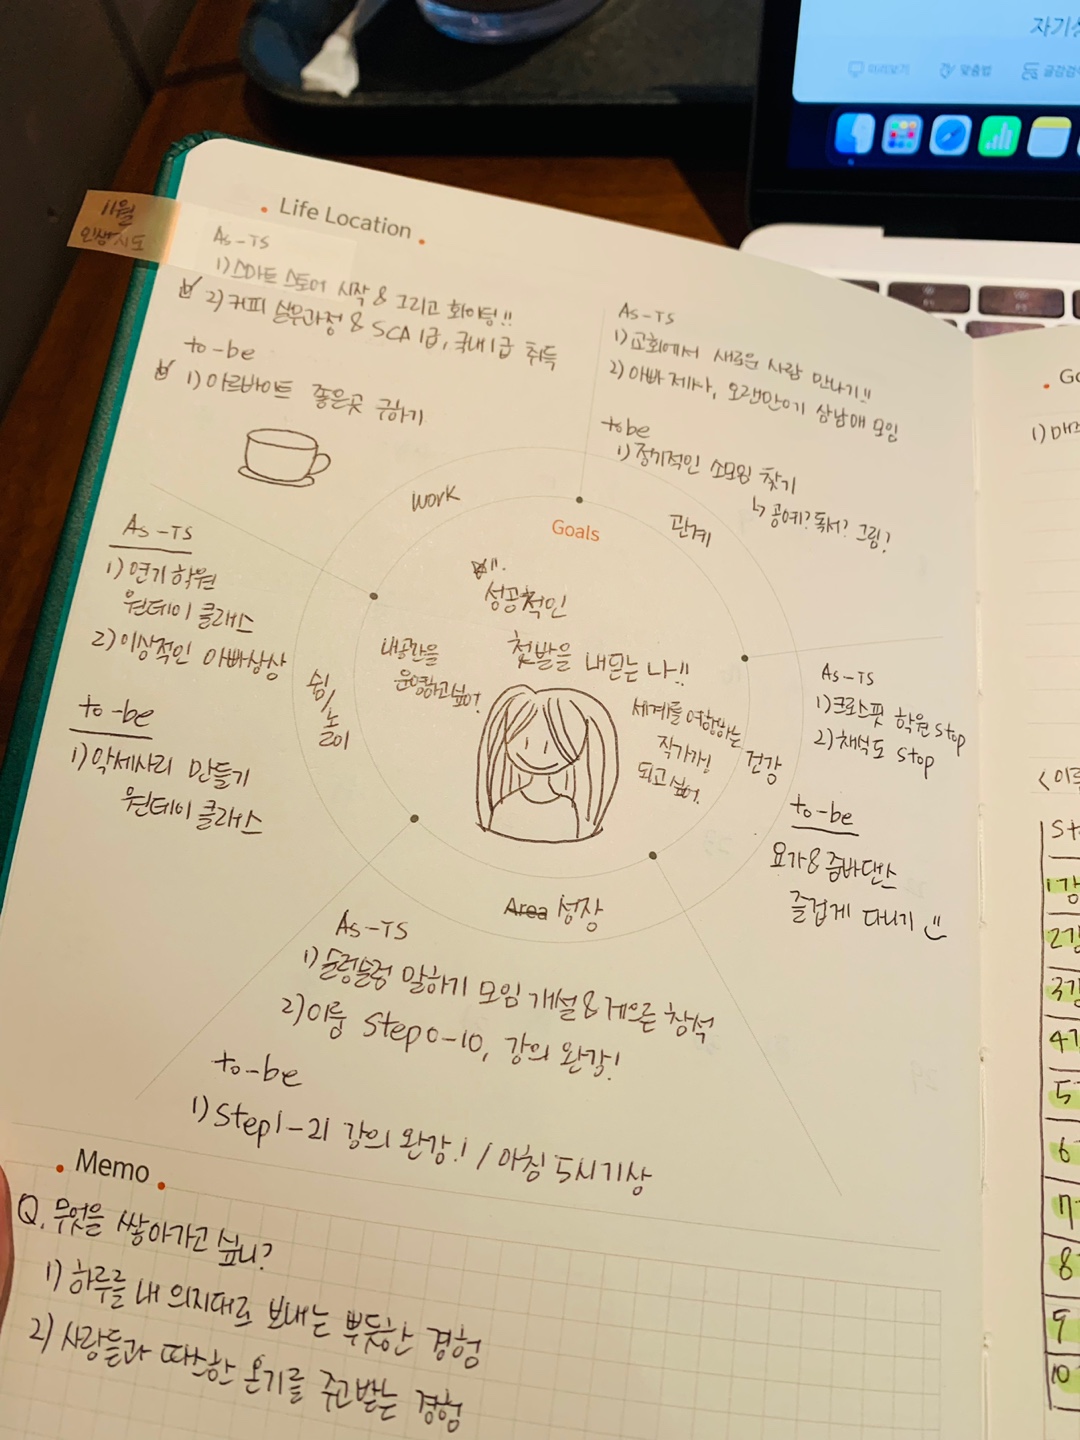 11월
인생지도
Life Location
As-TS
1) 스마트 스토어 시작 & 그리고 화이팅!!
2) 커피 실무과정 & SCA 1급, 국내 1급 취득
to-be
1) 아르바이트 좋은곳 구하기
work
As-TS
1) 교회에서 새로운 사람 만나기!!
2) 아빠 제사, 오랜만에 삼남매 모임
to be
1) 정기적인 소모임 찾기
↳ 공예? 독서? 그림?
관계
As-TS
1) 연기 학원
원데이 클래스
2) 이상적인 아빠상상
to-be
1) 악세사리 만들기
원데이 클래스
쉼/놀이
Goals
성공적인
첫발을 내딛는 나!!
내공간을
운영하고싶어.
세계를 여행하는
작가가!
되고 싶어.
건강
As-TS
1) 크로스핏 학원 stop
2) 채식도 stop
to-be
요가 & 줌바댄스
즐겁게 다니기
Area 성장
As-TS
1) 슬렁슬렁 말하기 모임 개설 & 게으른 참석
2) 이룸 Step 0-10, 강의 완강!
to-be
1) Step 1-21 강의 완강! / 아침 5시기상
Memo
Q. 무엇을 쌓아가고 싶니?
1) 하루를 내 의지대로 보내는 뿌듯한 경험
2) 사람들과 따스한 온기를 주고받는 경험
미리보기
맞춤법
1) 매
1강
2강
3강
4강
5
6
7
8
9
10